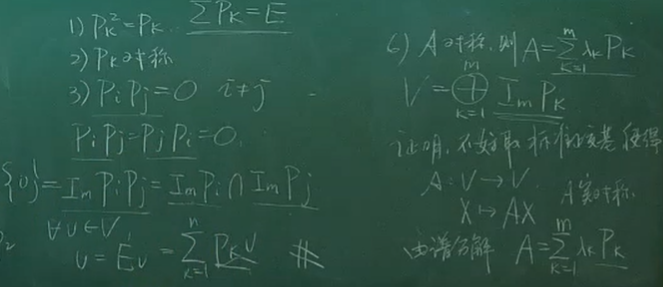 1) P_K^2=P_K. ∑P_K=E
2) P_K对称
3) P_iP_j=0 i≠j
P_iP_j=P_jP_i=0.
{0}=I_mP_iP_j=I_mP_i∩I_mP_j
∀v∈V
v=Ev=∑_{K=1}^{n}P_Kv #
6) A对称,则A=∑_{K=1}^{m}λ_KP_K
V=⊕_{K=1}^{m}I_mP_K
证明.不妨取标准正交基使得
A:V→V. A实对称.
X↦AX
由谱分解 A=∑_{K=1}^{m}λ_KP_K